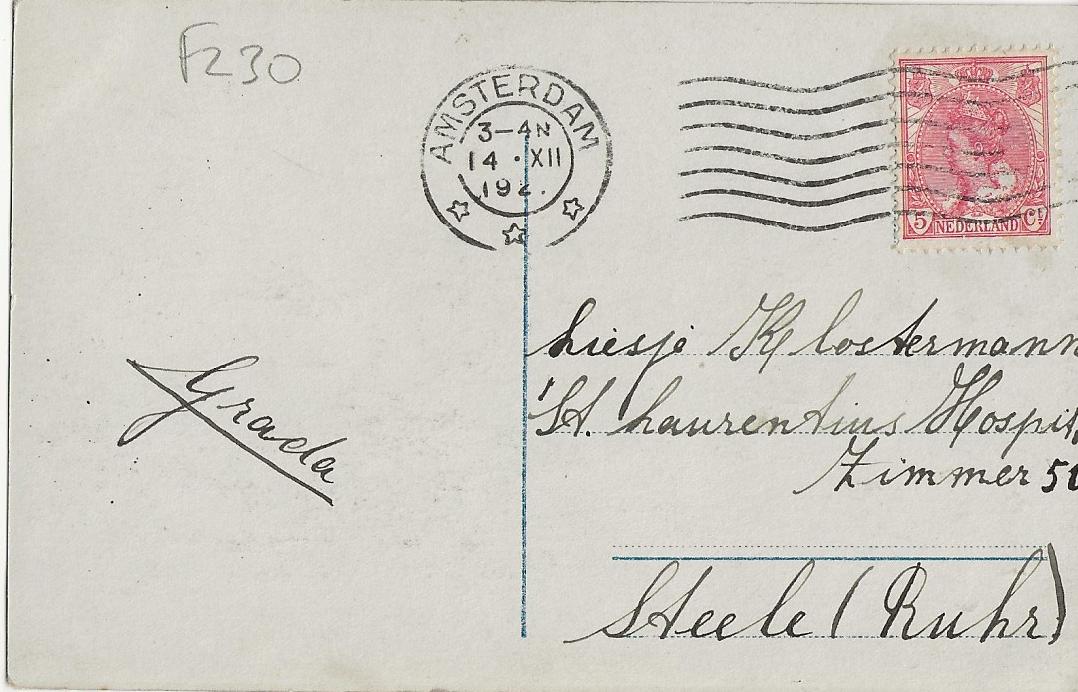 F230
AMSTERDAM
3-AN
14 · XII
192.
5 NEDERLAND Ct
Liesje Klostermann
St. Laurentius Hospit
Zimmer 5
Grada
Steele (Ruhr)